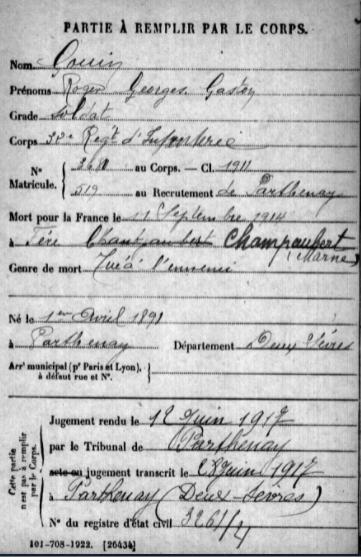 PARTIE À REMPLIR PAR LE CORPS.
Nom
Prénoms Roger Georges Gaston
Grade Soldat
Corps Régt d'Infanterie
N° Matricule. { au Corps. — Cl. 1911
519 au Recrutement de Parthenay
Mort pour la France le 11 Septembre 1914
à Fère Champaubert (Marne)
Genre de mort Tué à l'ennemi
Né le 1er Avril 1891
à Parthenay Département Deux Sèvres
Arrt municipal (pr Paris et Lyon), à défaut rue et N°. }
Cette partie n'est pas à remplir par le Corps.
Jugement rendu le 12 Juin 1917
par le Tribunal de Parthenay
acte ou jugement transcrit le 28 juin 1917
à Parthenay (Deux-Sèvres)
N° du registre d'état civil 3261/4
101-708-1922. [26434]